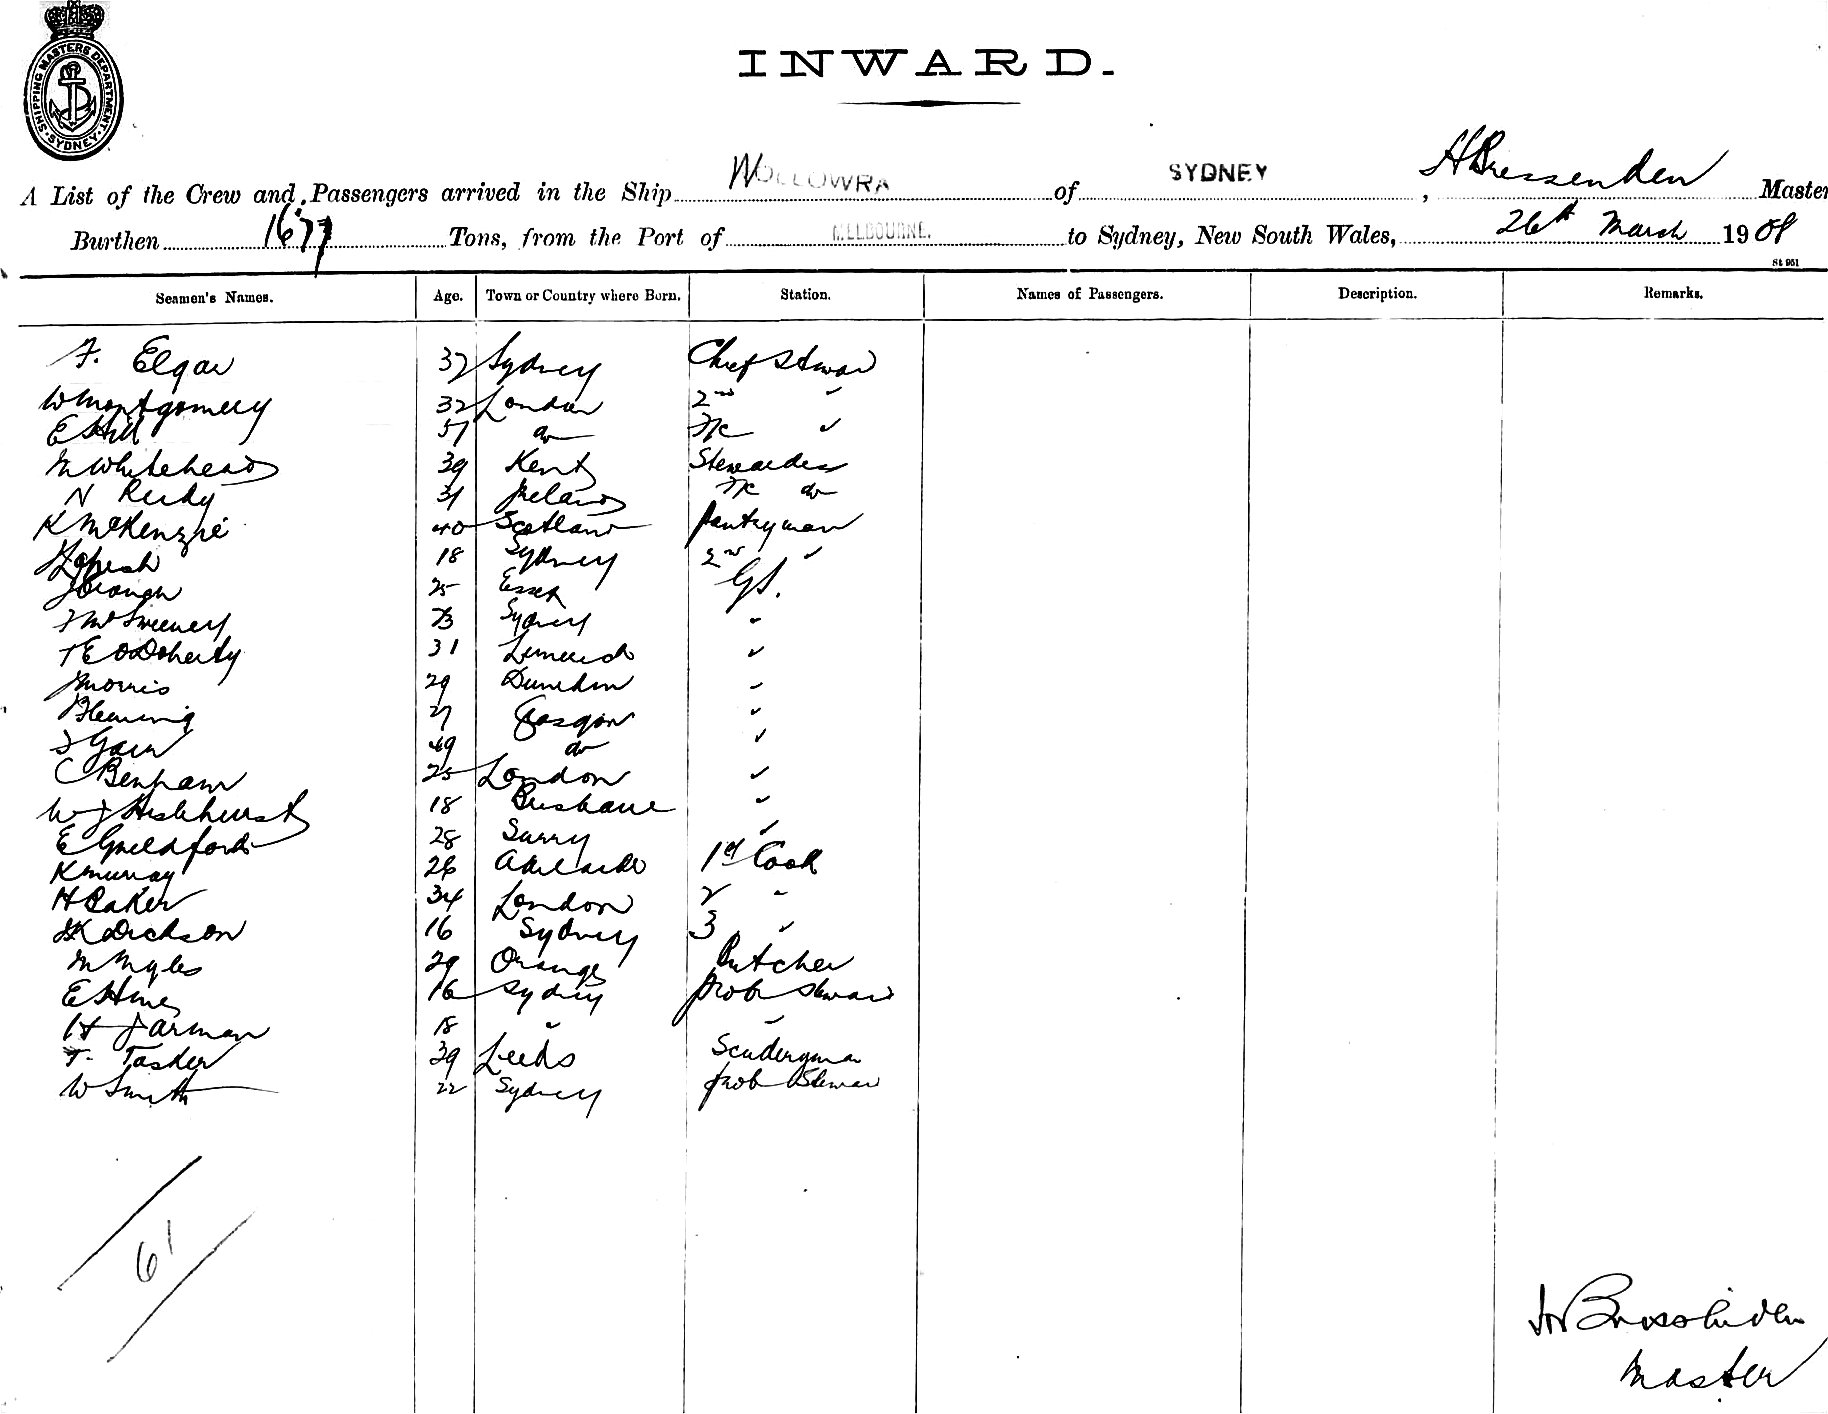 SHIPPING MASTERS DEPARTMENT · SYDNEY ·
INWARD.
A List of the Crew and Passengers arrived in the Ship WOLLOWRA of SYDNEY, Master
Burthen 1677 Tons, from the Port of MELBOURNE. to Sydney, New South Wales, 26th March 1908
St 951
Seamen's Names. Age. Town or Country where Born. Station. Names of Passengers. Description. Remarks.
F. Elgar 37 Sydney Chief Stewar
W Montgomery 32 London 2nd "
E Hill 57 do F/c "
M Whitehead 39 Kent Stewardess
N Reidy 31 Ireland F/c do
K McKenzie 40 Scotland pantryman
18 Sydney 2nd "
25 Essex G.S.
McSweeney 23 Sydney "
T E O'Doherty 31 Limerick "
J Morris 29 Dunedin "
Fleming 27 Glasgow "
Gain 49 do "
C Benham 25 London "
W J Heslehurst 18 Brisbane "
E Guildford 28 Surry "
K Murray 26 Adelaide 1st Cook
H Baker 34 London 2 "
Dickson 16 Sydney 3 "
M Myles 29 Orange Butcher
E Hine 16 Sydney prob Stewar
H Jarman 18 " "
T. Tasker 39 Leeds
W Smith 22 Sydney prob Stewar
61
Master